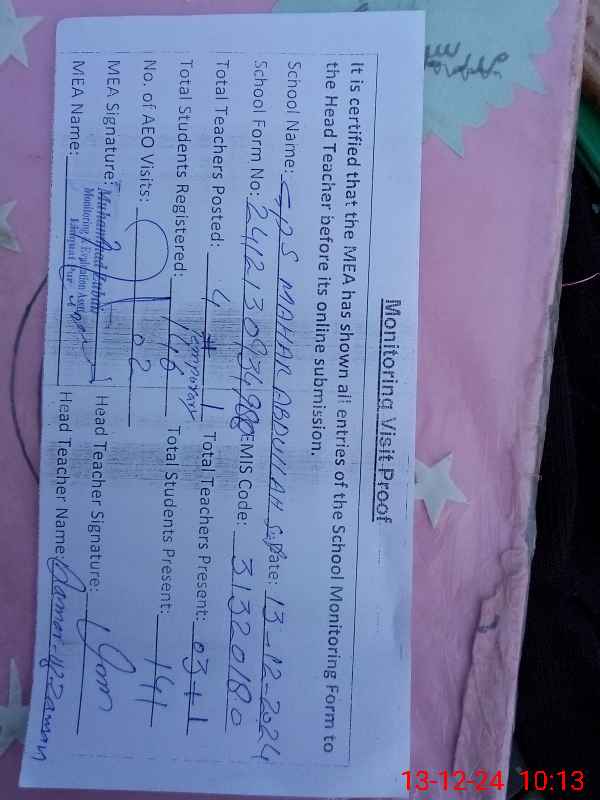 Monitoring Visit Proof
It is certified that the MEA has shown all entries of the School Monitoring Form to
the Head Teacher before its online submission.
School Name: GPS MAHAR ABDULLAH Date: 13-12-2024
School Form No: EMIS Code: 31320180
Total Teachers Posted: 4 + 1 Temporary Total Teachers Present: 03+1
Total Students Registered: 146 Total Students Present: 141
No. of AEO Visits: 02
MEA Signature: Head Teacher Signature:
MEA Name: Head Teacher Name:
Muhammad
Monitoring & Evaluation Assis
13-12-24 10:13